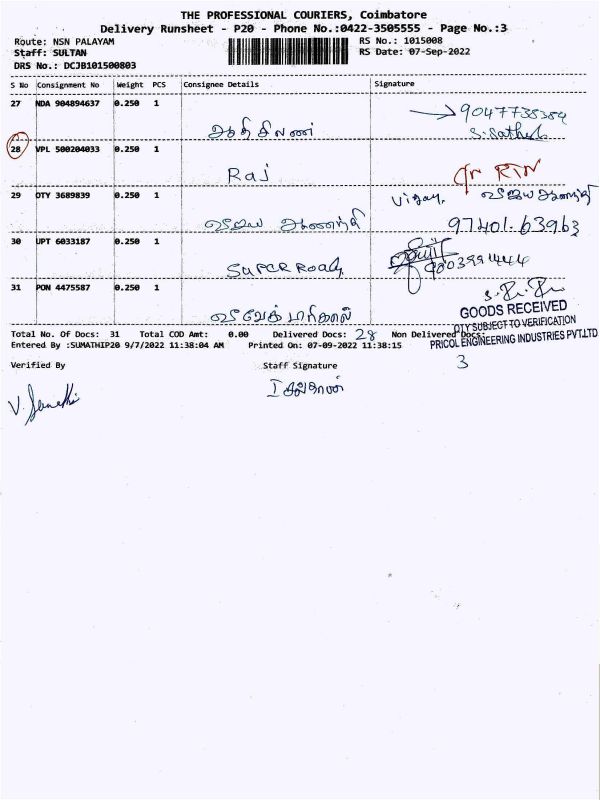 THE PROFESSIONAL COURIERS, Coimbatore
Delivery Runsheet - P20 - Phone No.:0422-3505555 - Page No.:3
Route: NSN PALAYAM RS No.: 1015008
Staff: SULTAN RS Date: 07-Sep-2022
DRS No.: DCJB101500803
S No Consignment No Weight PCS Consignee Details Signature
27 NDA 904894637 0.250 1
28 VPL 500204033 0.250 1
Raj RTN
29 OTY 3689839 0.250 1 Vijay.
97401.63963
30 UPT 6033187 0.250 1
SUPER ROAD
31 PON 4475587 0.250 1
GOODS RECEIVED
QTY SUBJECT TO VERIFICATION
PRICOL ENGINEERING INDUSTRIES PVT.LTD
Total No. Of Docs: 31 Total COD Amt: 0.00 Delivered Docs: 28 Non Delivered Docs: 3
Entered By :SUMATHIP20 9/7/2022 11:38:04 AM Printed On: 07-09-2022 11:38:15
Verified By Staff Signature